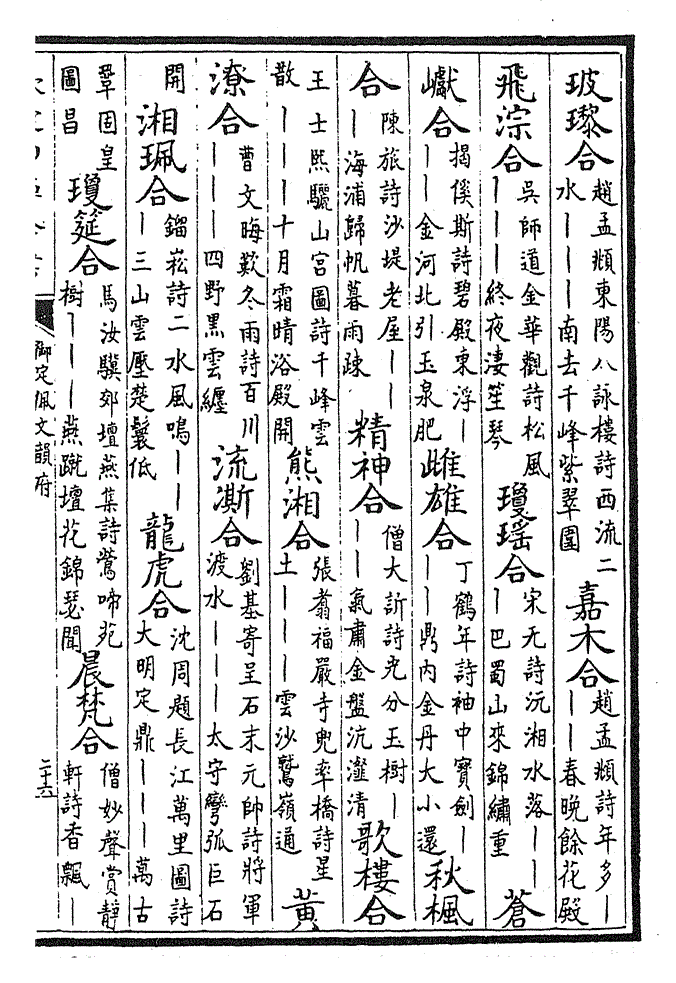 玻瓈合趙孟頫東陽八詠樓詩西流二水｜｜｜南去千峰紫翠圍嘉木合趙孟頫詩年多｜｜｜春晚餘花殿
飛淙合吳師道金華觀詩松風｜｜｜終夜淒笙琴瓊瑤合宋无詩沅湘水落｜｜｜巴蜀山來錦繡重蒼
巘合揭傒斯詩碧殿東浮｜｜｜金河北引玉泉肥雌雄合丁鶴年詩袖中寶劍｜｜｜鼎內金丹大小還秋楓
合陳旅詩沙堤老屋｜｜｜海浦歸帆暮雨疎精神合僧大訢詩充分玉樹｜｜｜氣肅金盤沆瀣清歌樓合
王士熙驪山宮圖詩千峰雲散｜｜｜十月霜晴浴殿開熊湘合張翥福嚴寺兜率橋詩星土｜｜｜雲沙鷲嶺通黃
潦合曹文晦歎冬雨詩百川｜｜｜四野黑雲纏流澌合劉基寄呈石末元帥詩將軍渡水｜｜｜太守彎弧巨石
開湘珮合鎦崧詩二水風鳴｜｜｜三山雲壓楚鬟低龍虎合沈周題長江萬里圖詩大明定鼎｜｜｜萬古
鞏固皇圖昌瓊筵合馬汝驥郊壇燕集詩鶯啼苑樹｜｜｜燕蹴壇花錦瑟聞晨梵合僧妙聲賞靜軒詩香飄｜
御定佩文韻府
二十六